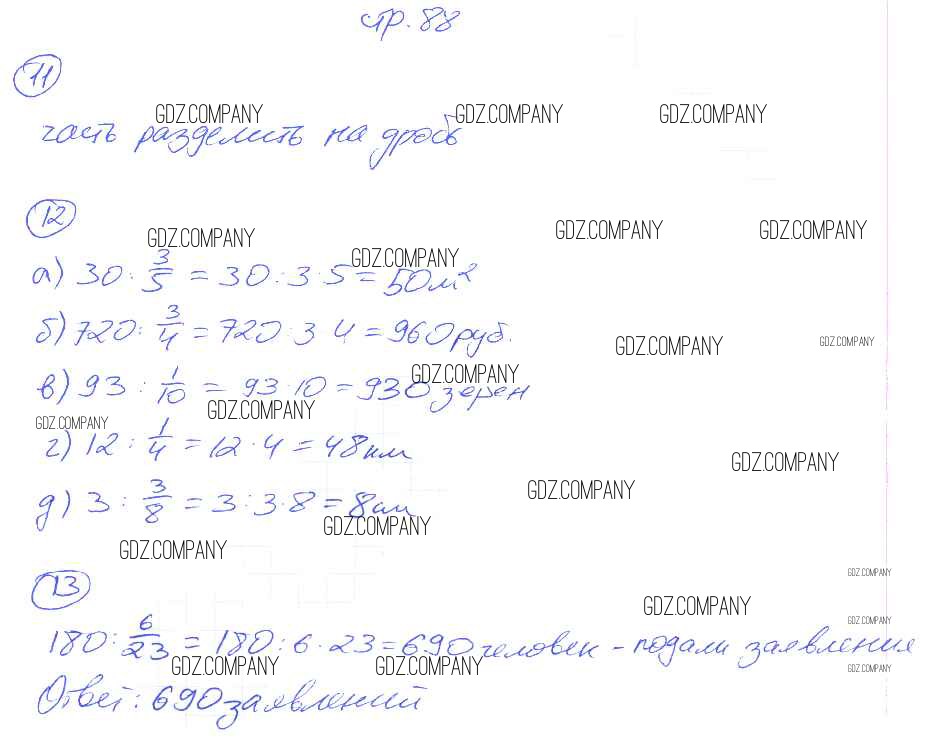 стр. 88
11
GDZ.COMPANY GDZ.COMPANY GDZ.COMPANY
часть разделить на дробь
12
GDZ.COMPANY GDZ.COMPANY GDZ.COMPANY GDZ.COMPANY
а) 30 : 3/5 = 30 : 3 · 5 = 50 м²
б) 720 : 3/4 = 720 : 3 4 = 960 руб.
GDZ.COMPANY GDZ.COMPANY
в) 93 : 1/10 = 93 · 10 = 930 зерен
GDZ.COMPANY GDZ.COMPANY GDZ.COMPANY
г) 12 : 1/4 = 12 · 4 = 48 км
GDZ.COMPANY GDZ.COMPANY
д) 3 : 3/8 = 3 : 3 · 8 = 8 см
GDZ.COMPANY GDZ.COMPANY
13
GDZ.COMPANY GDZ.COMPANY GDZ.COMPANY
180 : 6/23 = 180 : 6 · 23 = 690 человек - подали заявления
GDZ.COMPANY GDZ.COMPANY GDZ.COMPANY
Ответ: 690 заявлений